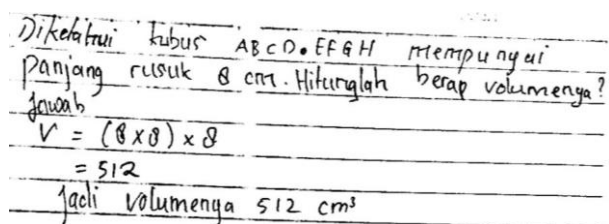 Diketahui kubus ABCD.EFGH mempunyai
panjang rusuk 8 cm. Hitunglah berap volumenya?
Jawab
V = (8 x 8) x 8
= 512
Jadi volumenya 512 cm³